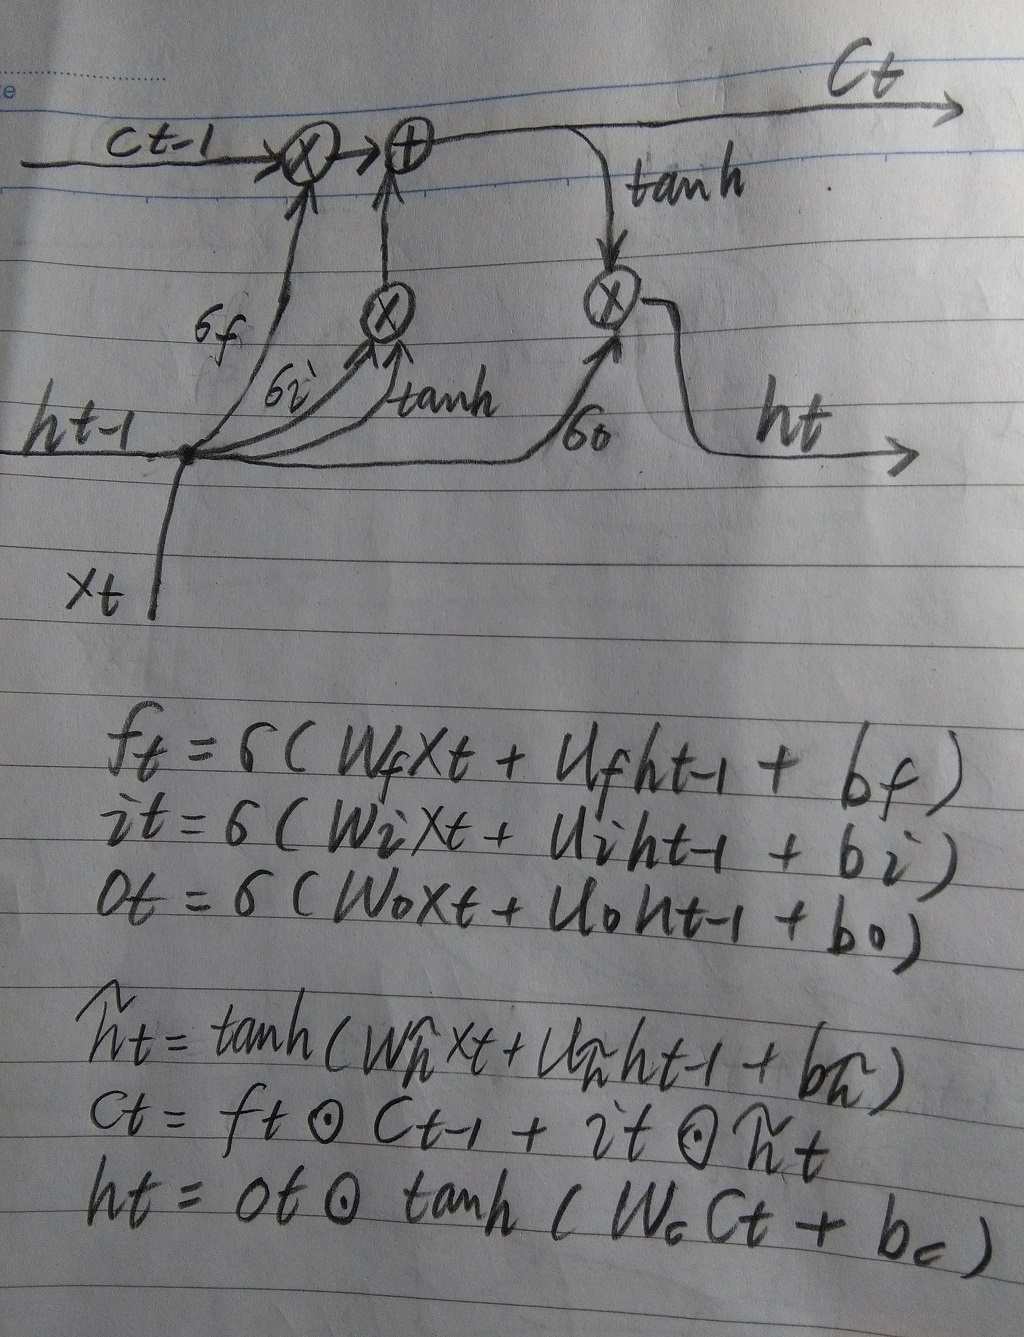 Ct
Ct-1
tanh
σf
σi
tanh
ht-1
σo
ht
xt
ft = σ ( Wf xt + Uf ht-1 + bf )
it = σ ( Wi xt + Ui ht-1 + bi )
ot = σ ( Wo xt + Uo ht-1 + bo )
h̃t = tanh ( Wh̃ xt + Uh̃ ht-1 + bh̃ )
Ct = ft ⊙ Ct-1 + it ⊙ h̃t
ht = ot ⊙ tanh ( Wc Ct + bc )